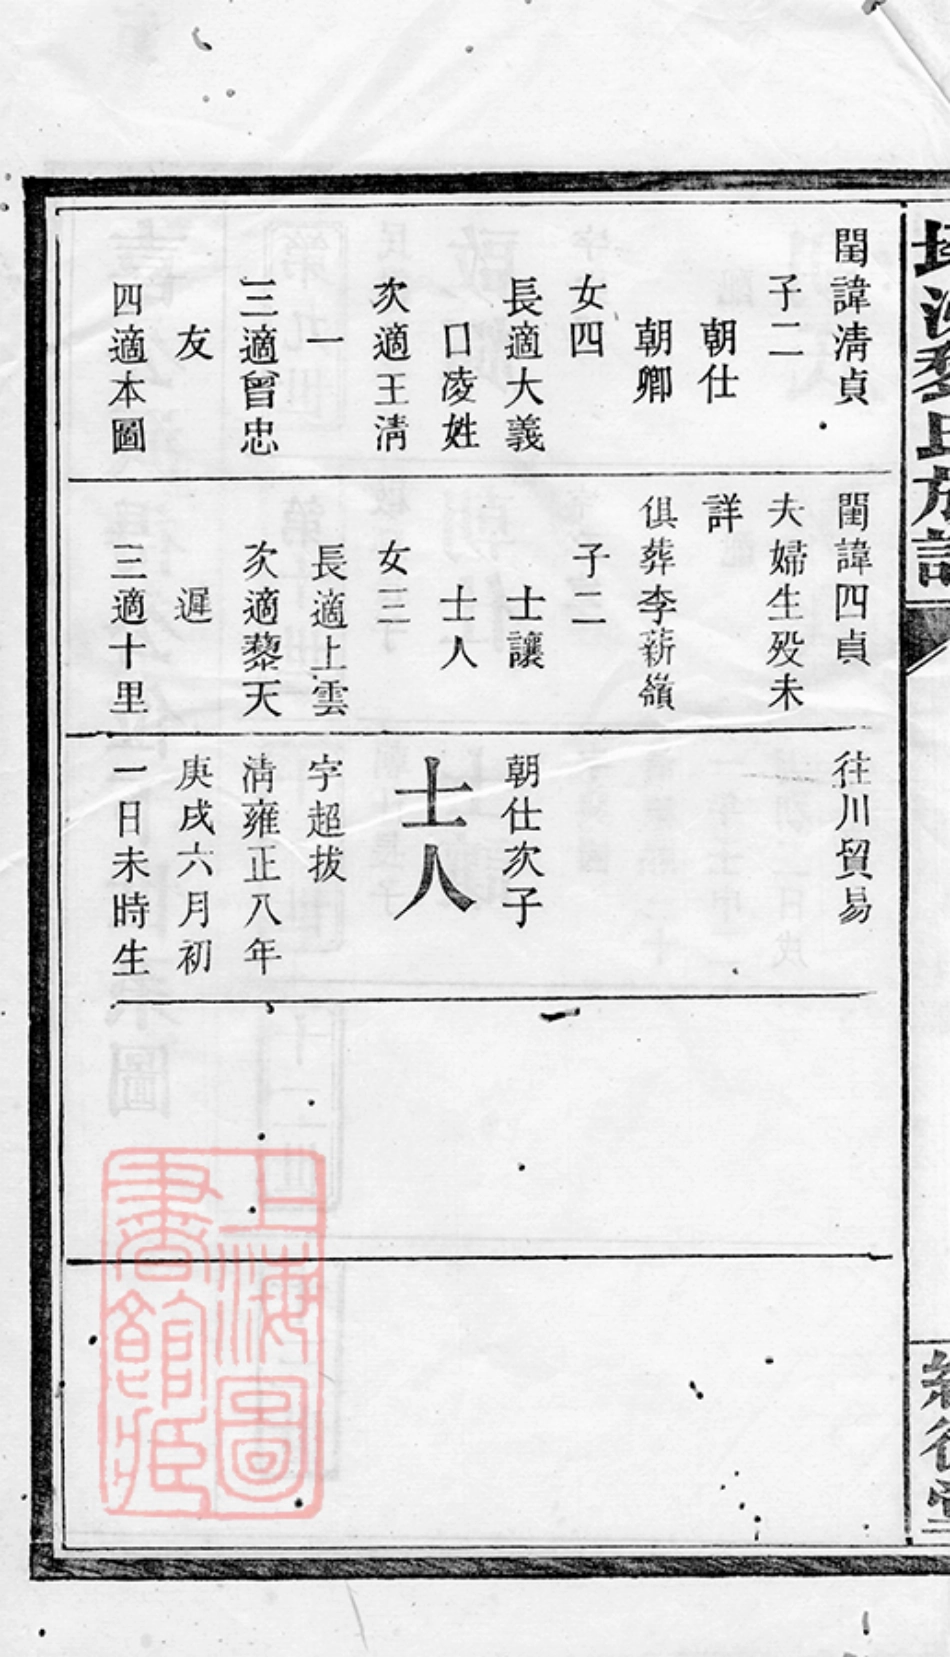 閨諱淸貞
子二
朝仕
朝卿
女四
長適大義
口凌姓
次適王淸
一
三適曾忠
友
四適本圖
閨諱四貞
夫婦生殁未
詳
俱葬李薪嶺
子二
士讓
士人
女三
長適上雲
次適藜天
遲
三適十里
往川貿易
朝仕次子
士人
字超拔
淸雍正八年
庚戌六月初
一日未時生
上海圖
書館藏